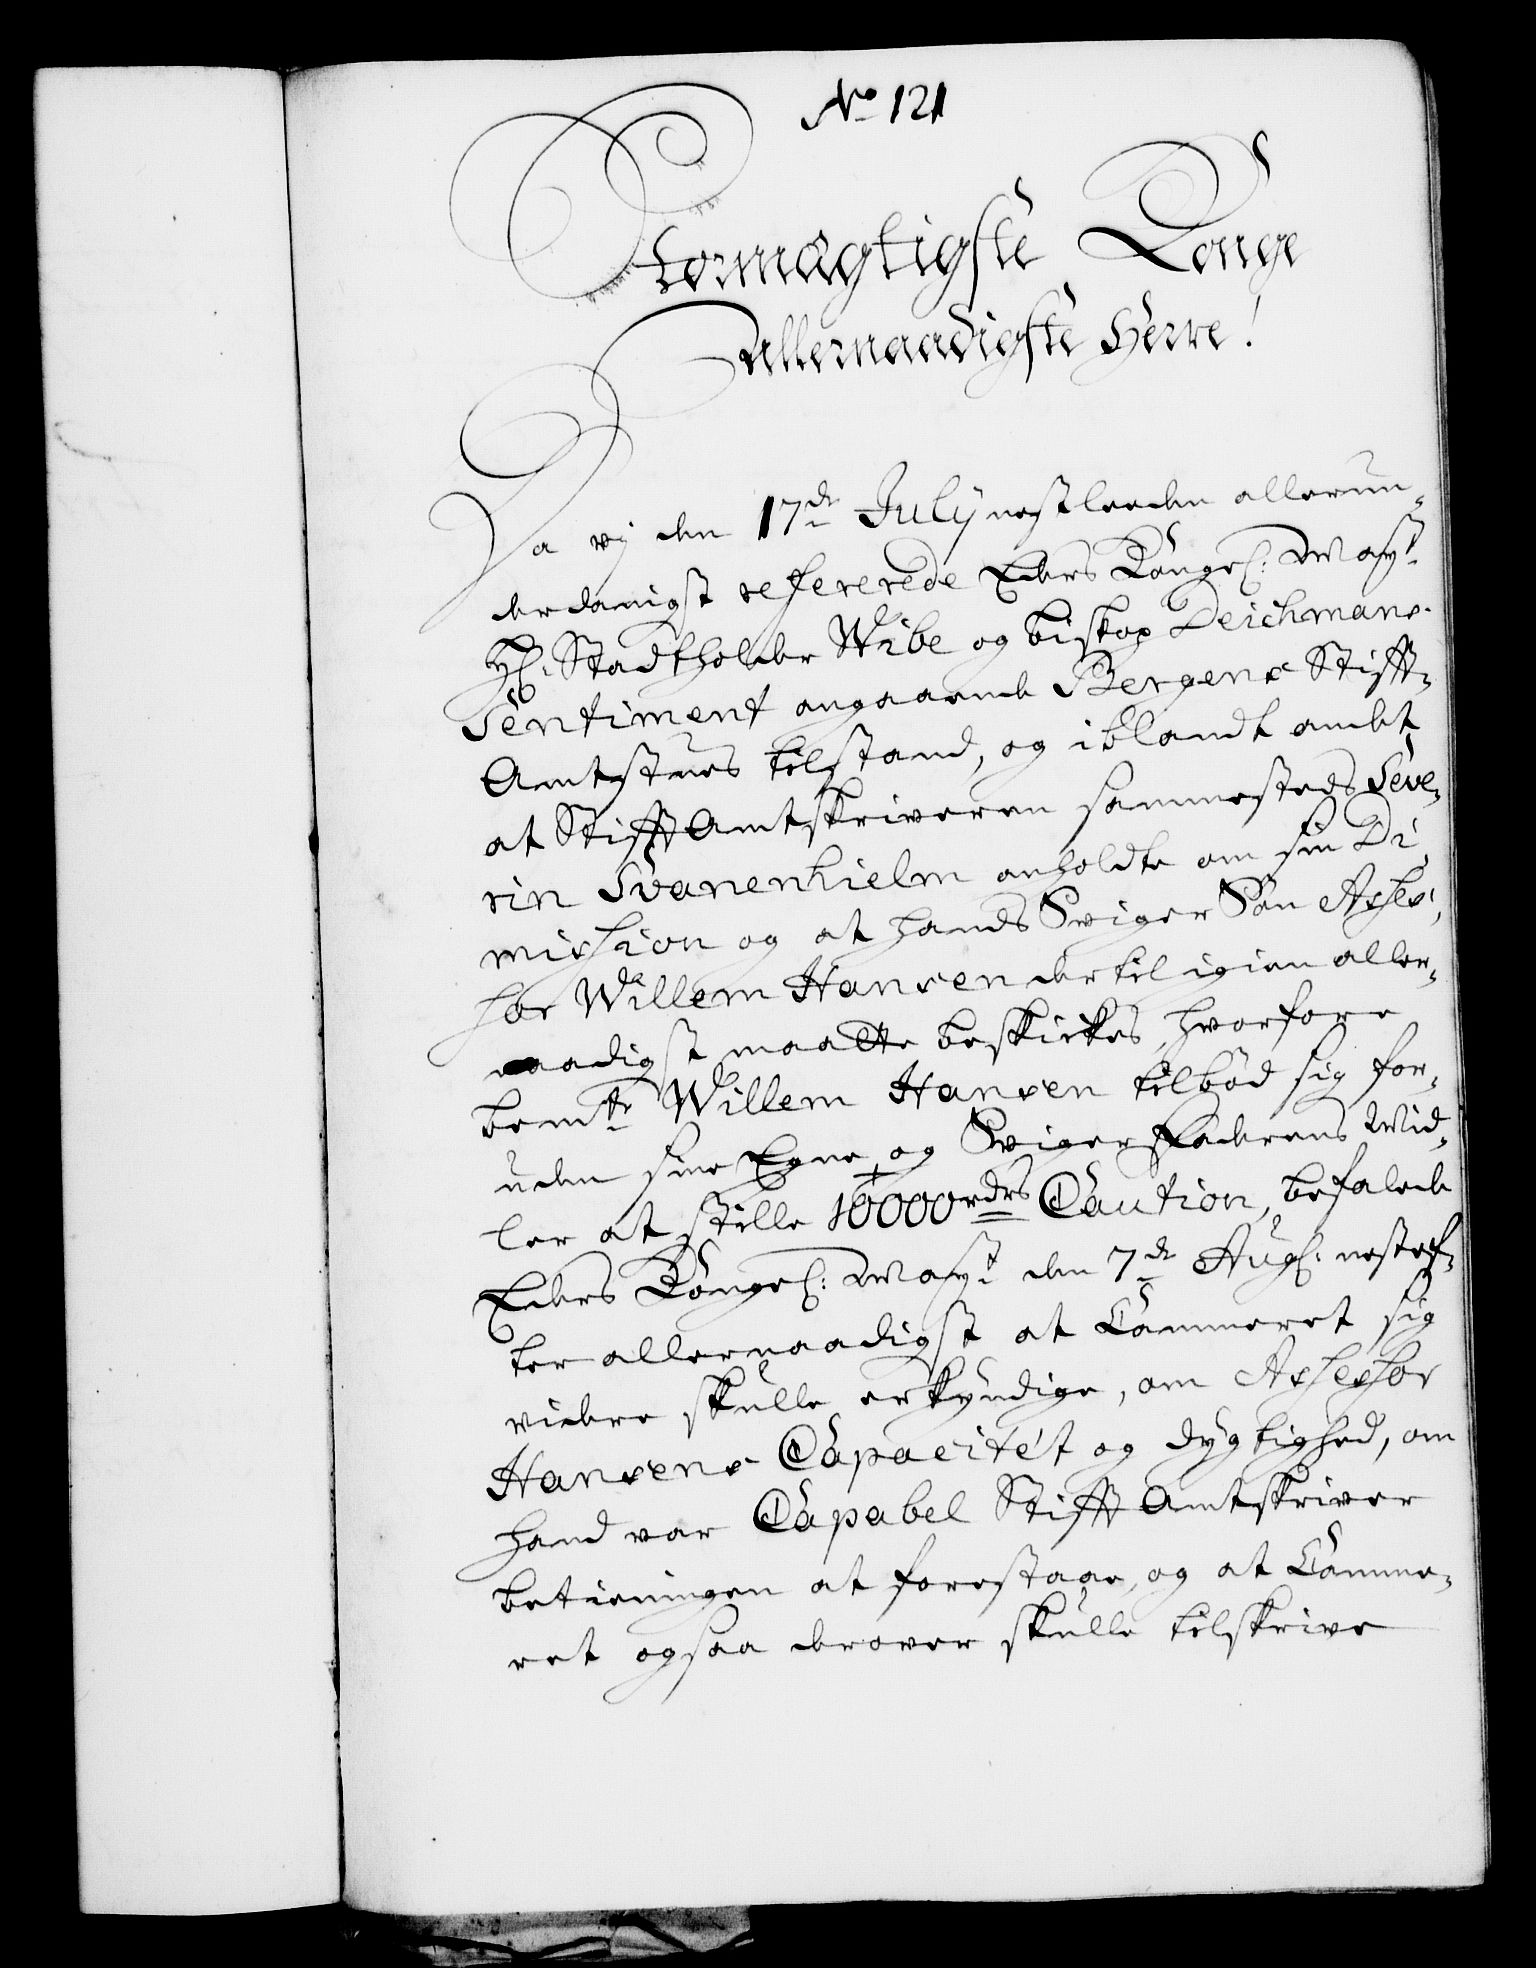 No 121
Stormægtigste Konge
Allernaadigste Herre!
Da vj den 17de July nestleeden allerun-
derdanigst refererede Eders Kongel: May:t
H: Stadtholder Wibe og biskop Deichmans
Sentiment angaaende Bergens Stift-
Amtstues tilstand, og iblandt andet
at Stift Amtskriveren sammesteds Seve-
rin Svanenhielm anholdte om sin Di-
mission og at hands Sviger Søn Asses-
sor Willem Hansen dertil igien aller-
naadigst maatte beskickes, hvorfore
bemte Willem Hansen tilbød sig for-
uden sine Egne og Sviger Faderens Mid-
ler at stille 10000 rdrs Caution, befalede
Eders Kongel: May:t den 7de Aug: nestef-
ter allernaadigst at Cammeret sig
videre skulle erkyndige, om Assessor
Hansens Capacitét og dygtighed, om
hand var Capabel Stift Amtskriver
betieningen at forestaae, og at Camme-
ret ogsaa derover skulle tilskrive